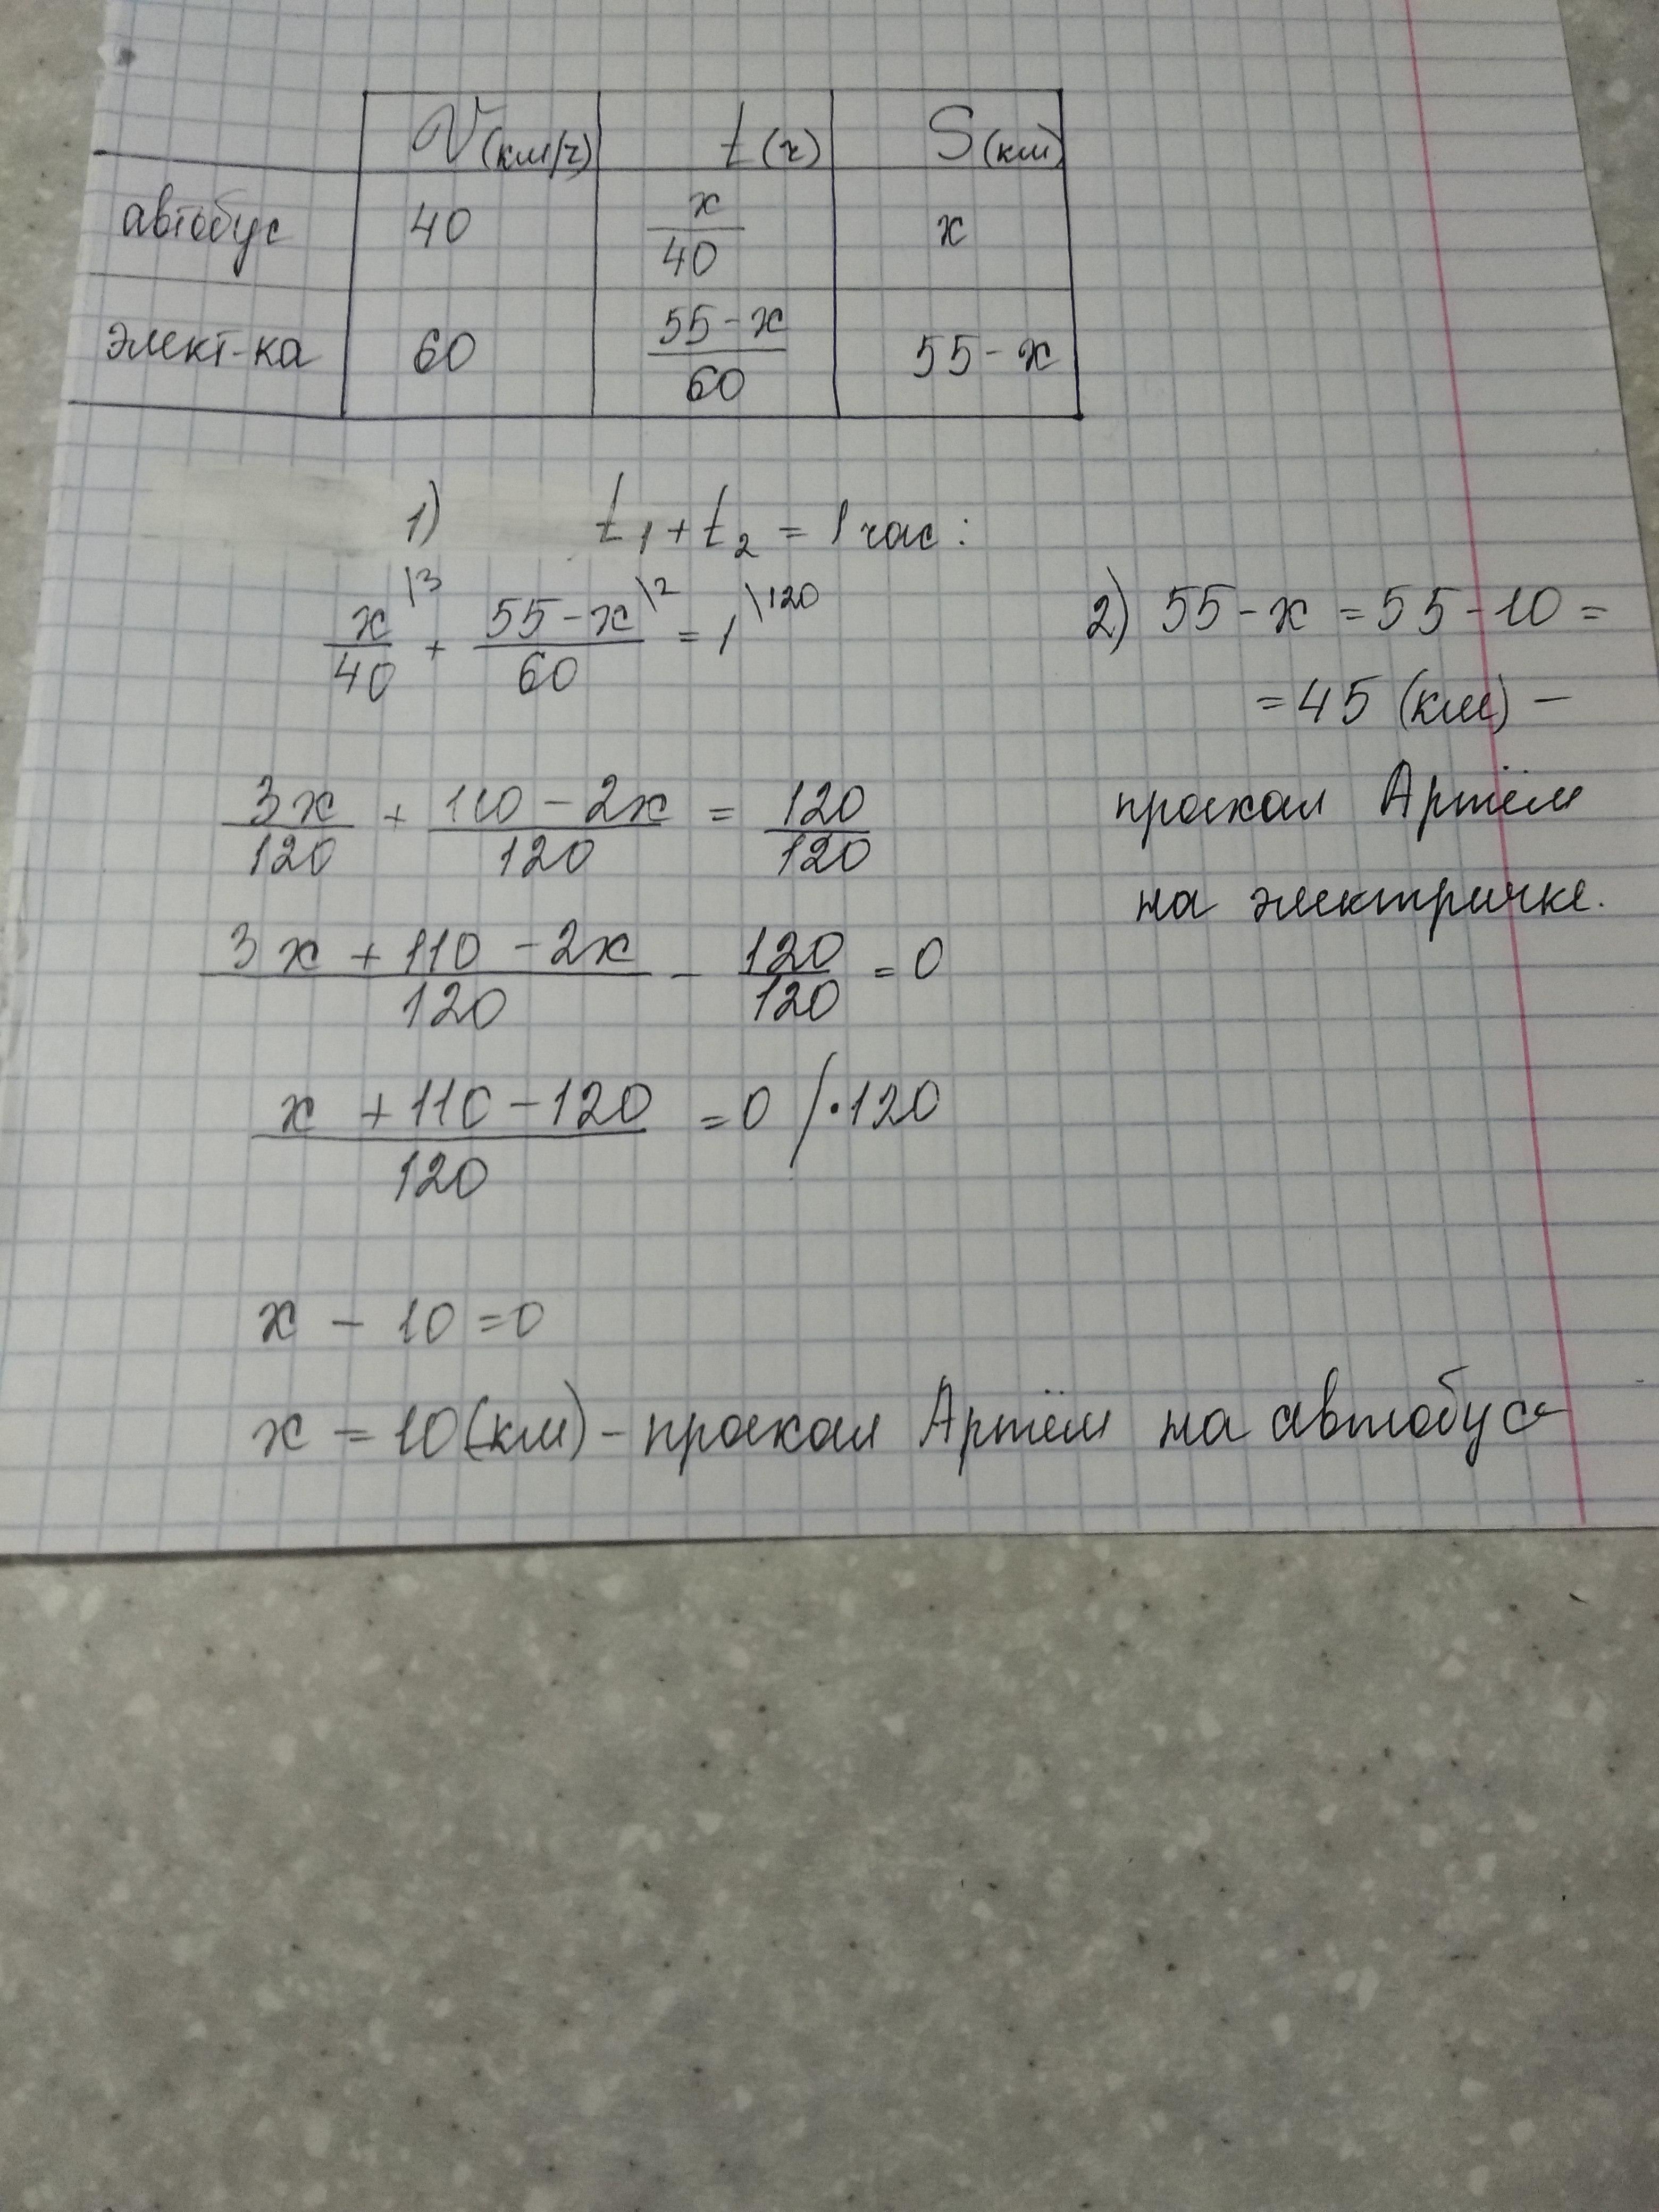 V (км/ч) t (ч) S (км)
автобус 40 x/40 x
элект-ка 60 55-x/60 55-x
1) t₁ + t₂ = 1 час:
x/40 \3 + 55-x/60 \2 = 1 \120
3x/120 + 110-2x/120 = 120/120
3x + 110 - 2x/120 - 120/120 = 0
x + 110 - 120/120 = 0 /·120
x - 10 = 0
x = 10 (км) - проехал Артём на автобусе
2) 55 - x = 55 - 10 =
= 45 (км) -
проехал Артём
на электричке.